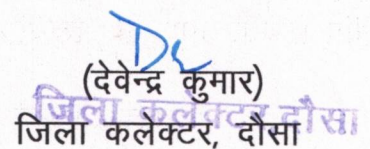 (देवेन्द्र कुमार)
जिला कलेक्टर दौसा
जिला कलेक्टर, दौसा